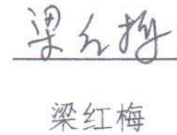 梁红梅
梁红梅